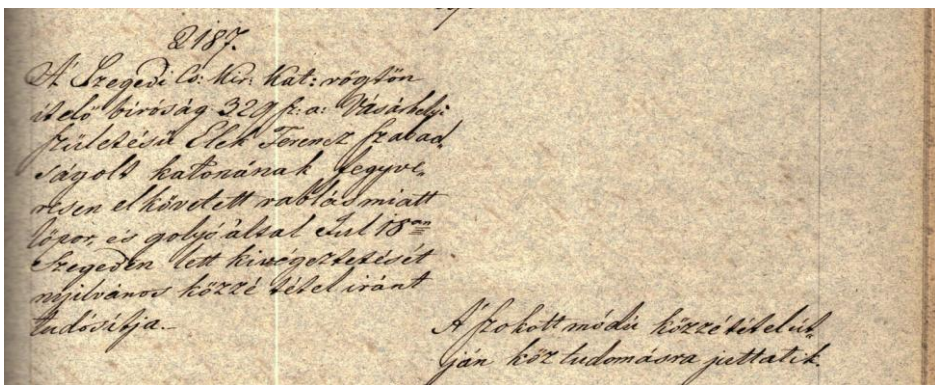 2187.
A' Szegedi Cs: Kir: Kat: rögtön
itelő biróság 329 sz: a: Vásárhelyi
születésü Elek Ferencz szabad„
ságolt katonának fegyve„
resen elkövetett rablás miatt
lőpor, és golyó által Jul 18an
Szegeden lett kivégeztetését
nyilvános közzé tétel iránt
tudósitja.–
A' szokott módú közzétételút„
ján köz tudomásra juttatik.